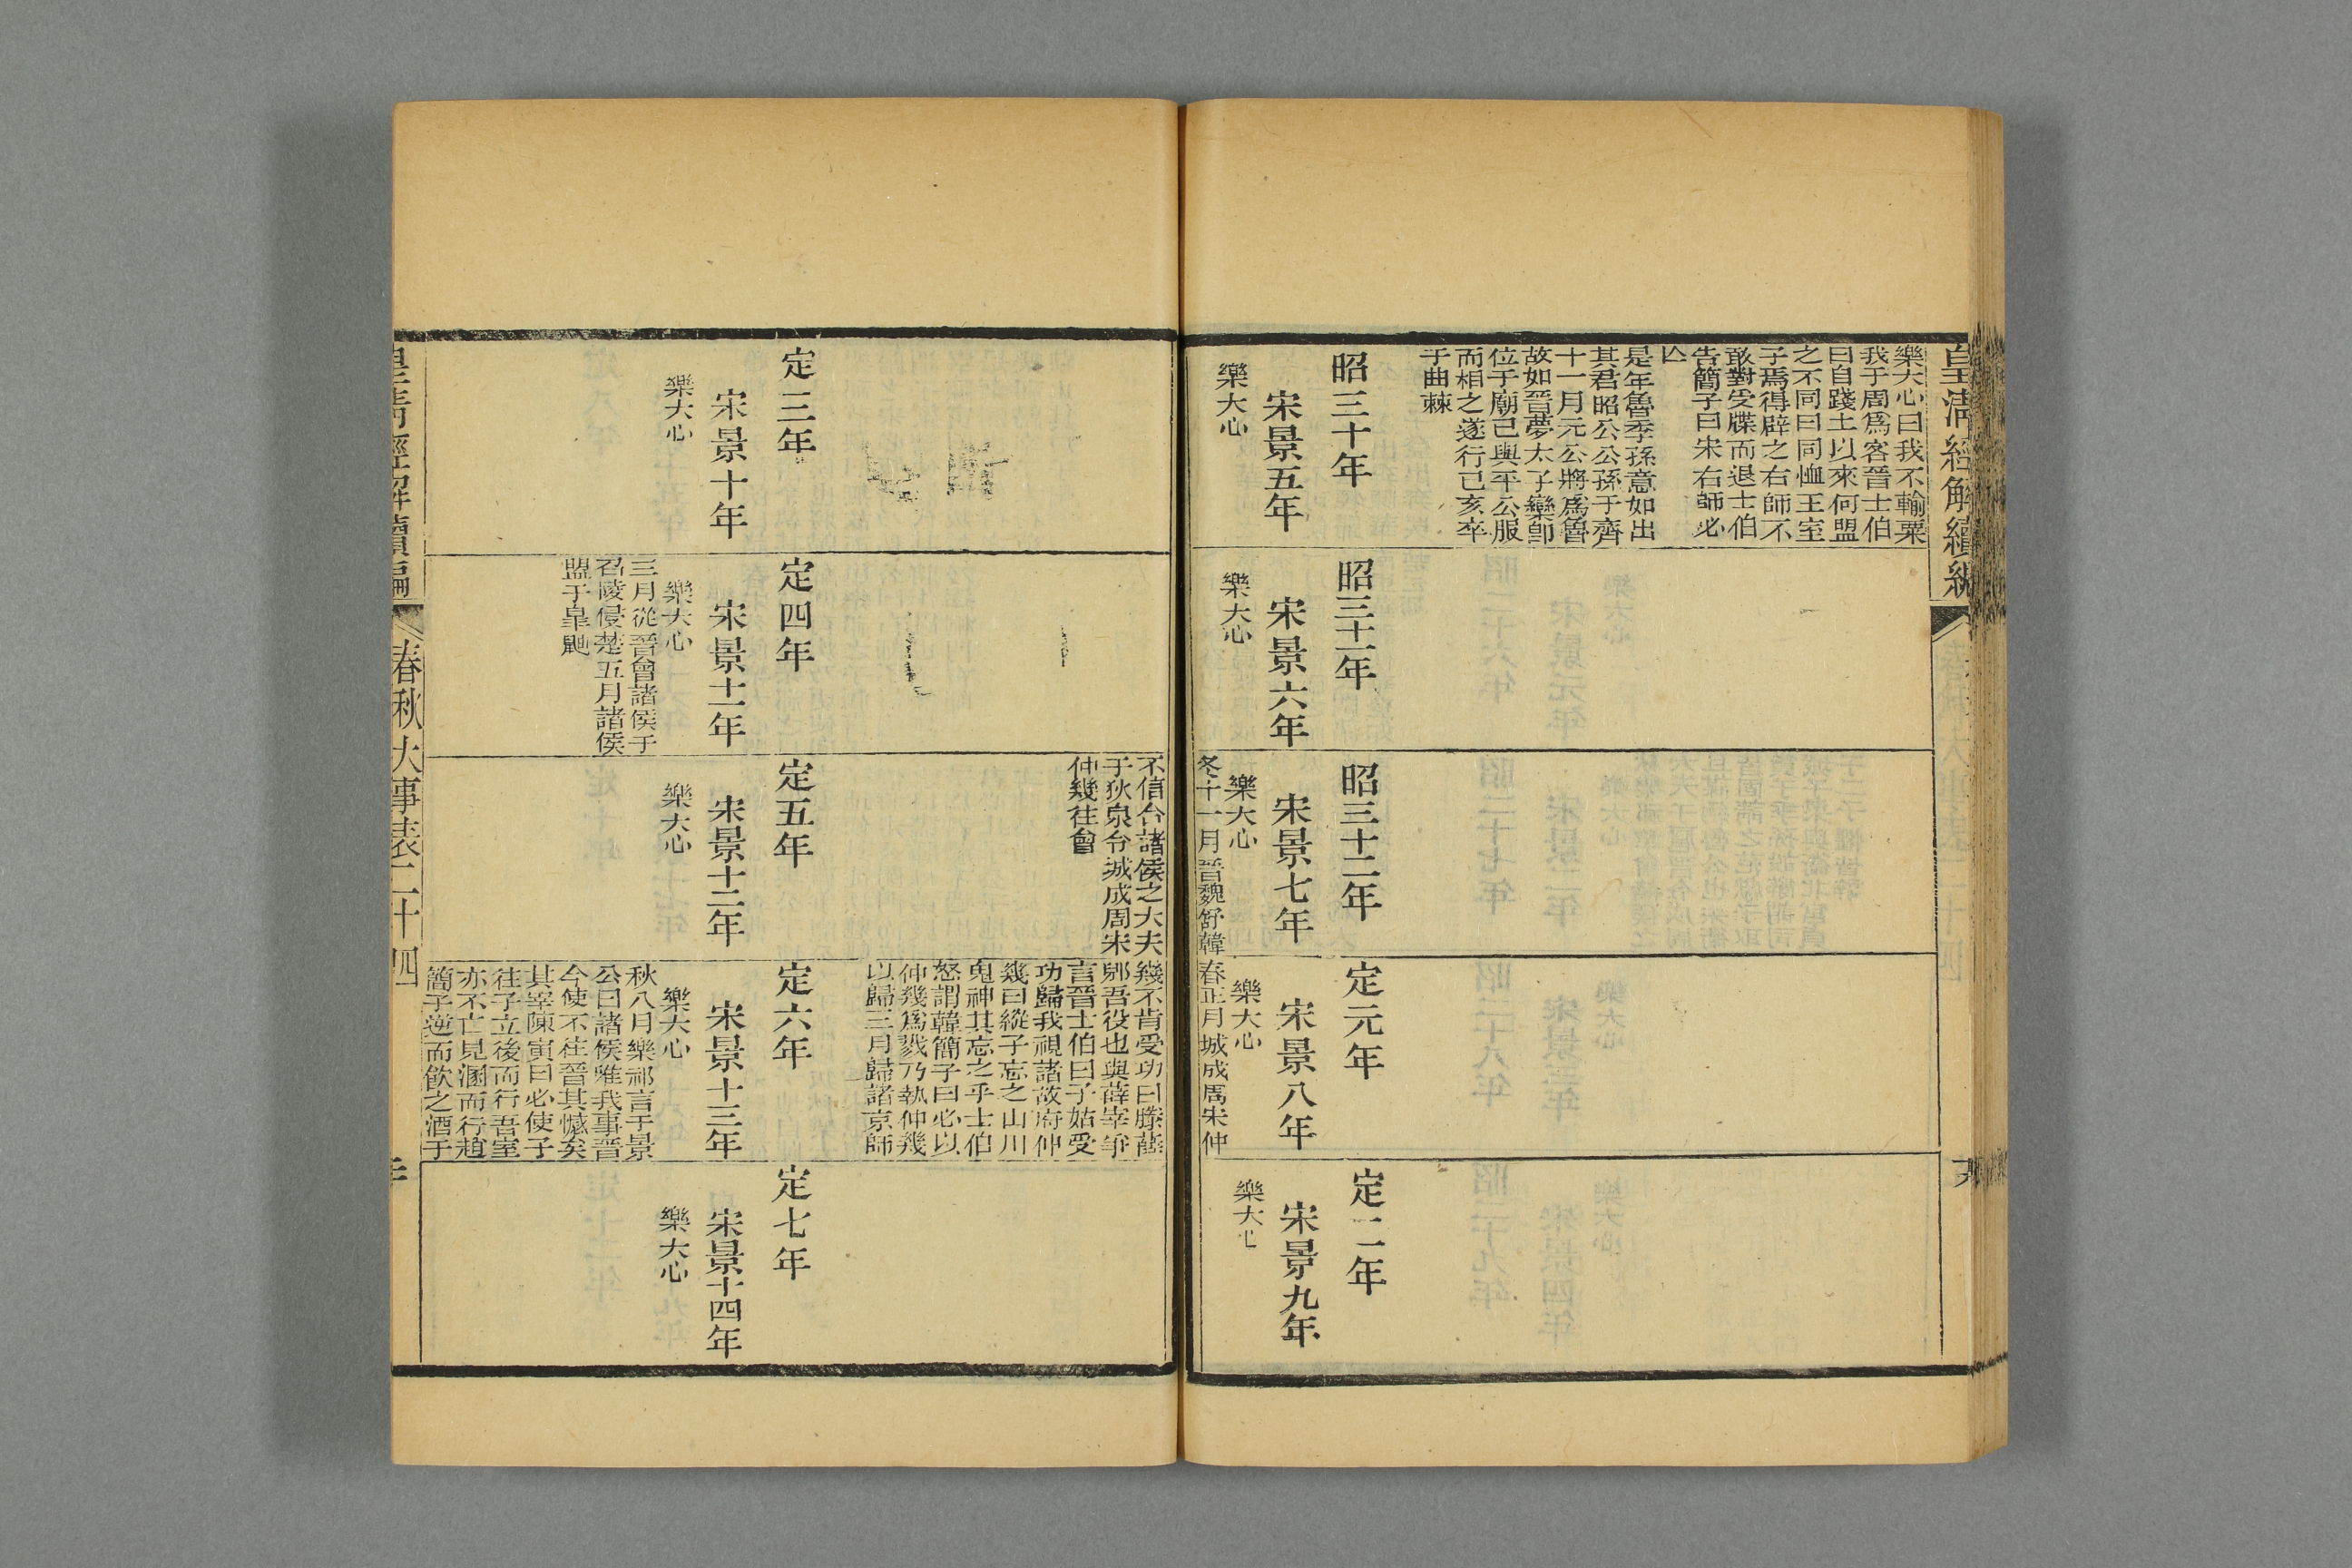 皇清經解續編
樂大心曰我不輸粟
我于周爲客晉士伯
曰自踐土以來何盟
之不同曰同恤王室
子焉得辟之右師不
敢對受牒而退士伯
告簡子曰宋右師必
亾
是年魯季孫意如出
其君昭公公孫于齊
十一月元公將爲魯
故如晉夢太子欒卽
位于廟己與平公服
而相之遂行己亥卒
于曲棘
昭三十年
宋景五年
樂大心
昭三十一年
宋景六年
樂大心
昭三十二年
宋景七年
樂大心
冬十一月晉魏舒韓
定元年
宋景八年
樂大心
春正月城成周宋仲
定二年
宋景九年
樂大心
不信合諸侯之大夫
于狄泉令城成周宋
仲幾往會
幾不肯受功曰滕薛
郳吾役也與薛宰爭
言晉士伯曰子姑受
功歸我視諸故府仲
幾曰縱子忘之山川
鬼神其忘之乎士伯
怒謂韓簡子曰必以
仲幾爲戮乃執仲幾
以歸三月歸諸京師
定三年
宋景十年
樂大心
定四年
宋景十一年
樂大心
三月從晉會諸侯于
召陵侵楚五月諸侯
盟于皐鼬
定五年
宋景十二年
樂大心
定六年
宋景十三年
樂大心
秋八月樂祁言于景
公曰諸侯唯我事晉
今使不往晉其憾矣
其宰陳寅曰必使子
往子立後而行吾室
亦不亡見溷而行趙
簡子逆而飮之酒于
定七年
宋景十四年
樂大心
皇淸經解續編
春秋大事表二十四